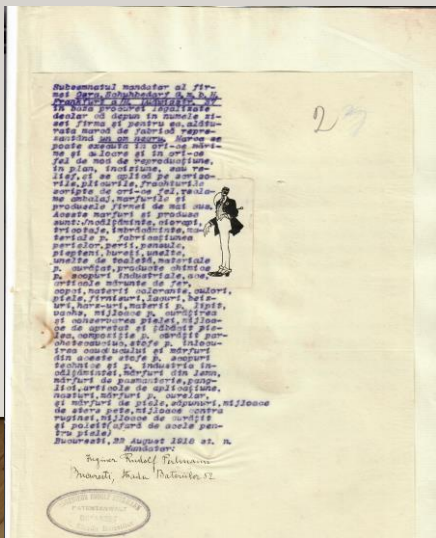 Subsemnatul mandatar al fir-
mei Gera, Schuhbedarf G.m.b.H.
Frankfurt a/M. Ludwigstr. 27
în baza procurei legalizate
declar că depun în numele zi-
sei firme și pentru ea, alătu-
rata marcă de fabrică repre-
zentând un om negru. Marca se
poate executa în ori-ce mări-
me și culoare și în ori-ce
fel de mod de reproducțiune,
în plan, inciziune, sau re-
lief, și se aplică pe scriso-
rile, plicurile, frachturile
scripte de ori-ce fel, recla-
me ambalaj, mărfurile și
produsele firmei de mai sus.
Aceste mărfuri și produse
sunt: Încălțăminte, ciorapi,
tricotaje, îmbrăcăminte, ma-
teriale p. fabricațiunea
periilor, perii, pensule,
piepteni, bureți, unelte,
unelte de toaletă, materiale
p. curățat, produse chimice
p. scopuri industriale, ace,
articole mărunte de fer,
copci, materii colorante, culori,
piele, firnisuri, lacuri, beiz-
uri, harz-uri, materii p. lipit,
vachs, mijloace p. curățirea
și conservarea pielei, mijloa-
ce de apretat și tăbăcit pie-
lea, compoziție p. curățit par-
chete
cauciucului și mărfuri
din p. scopuri
technice și p. industria în-
călțămintei, mărfuri din lemn,
mărfuri de posmanterie, pangli-
lici, articole de aplicațiune,
nasturi, mărfuri p. curelar,
și mărfuri de piele, săpunuri, mijloace
de stors pete, mijloace contra
ruginei, mijloace de curățit
și poleit (afară de acele pen-
tru piele)
Bucuresti, 22 August 1918 st. n.
Mandatar:
Inginer Rudolf
Bucuresti, Strada 52
PATENTANWALT
BUKAREST
2